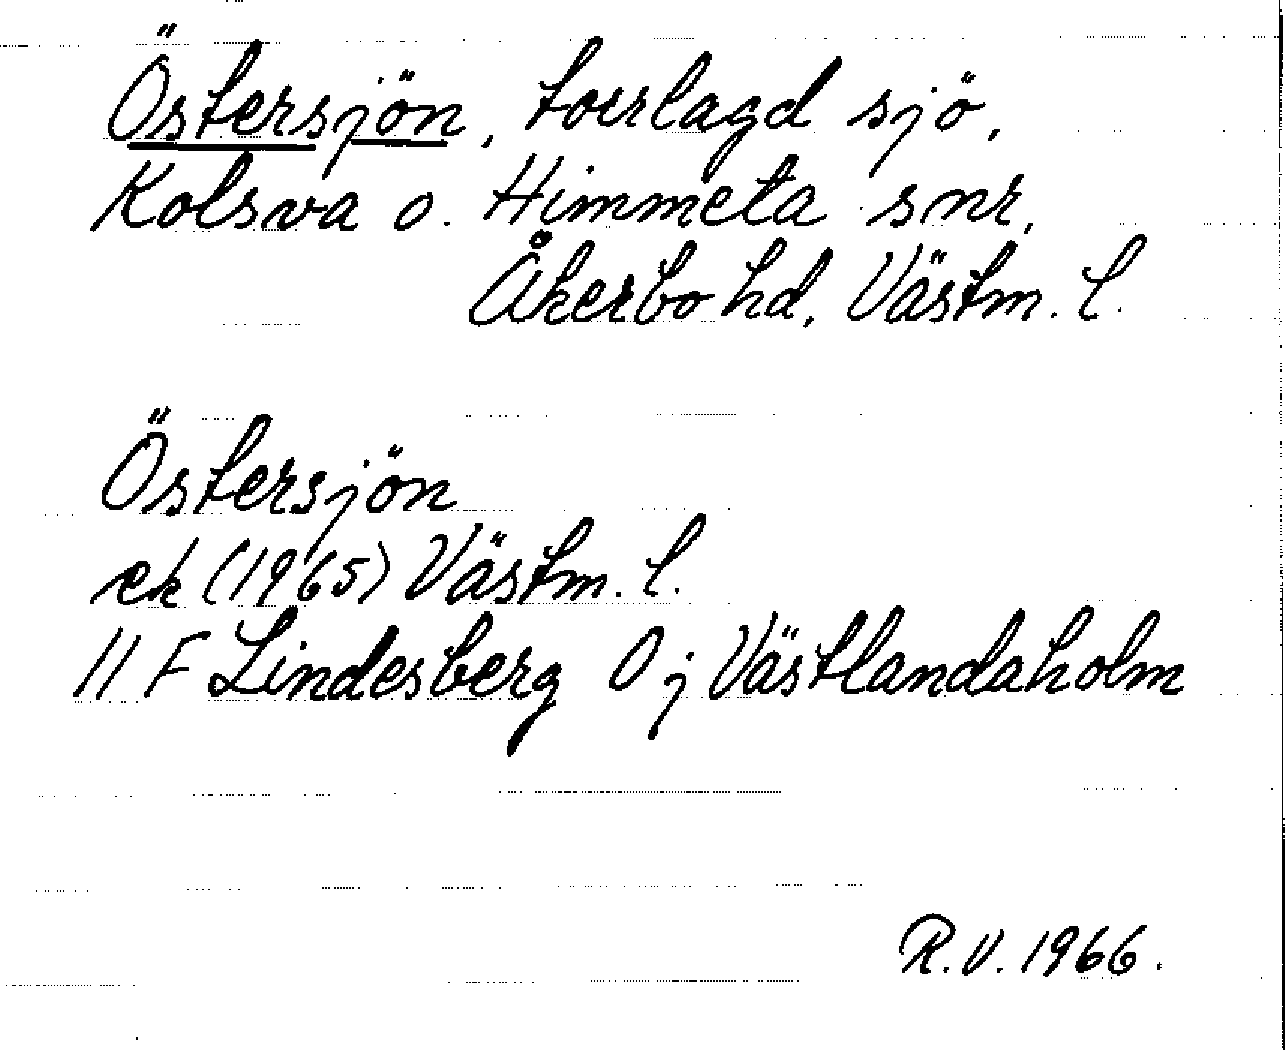 Östersjön, torrlagd sjö,
Kolsva o. Himmeta snr,
Åkerbo hd, Västm. l.
Östersjön
ek (1965) Västm. l.
11 F Lindesberg O j Västlandaholm
R.V. 1966.